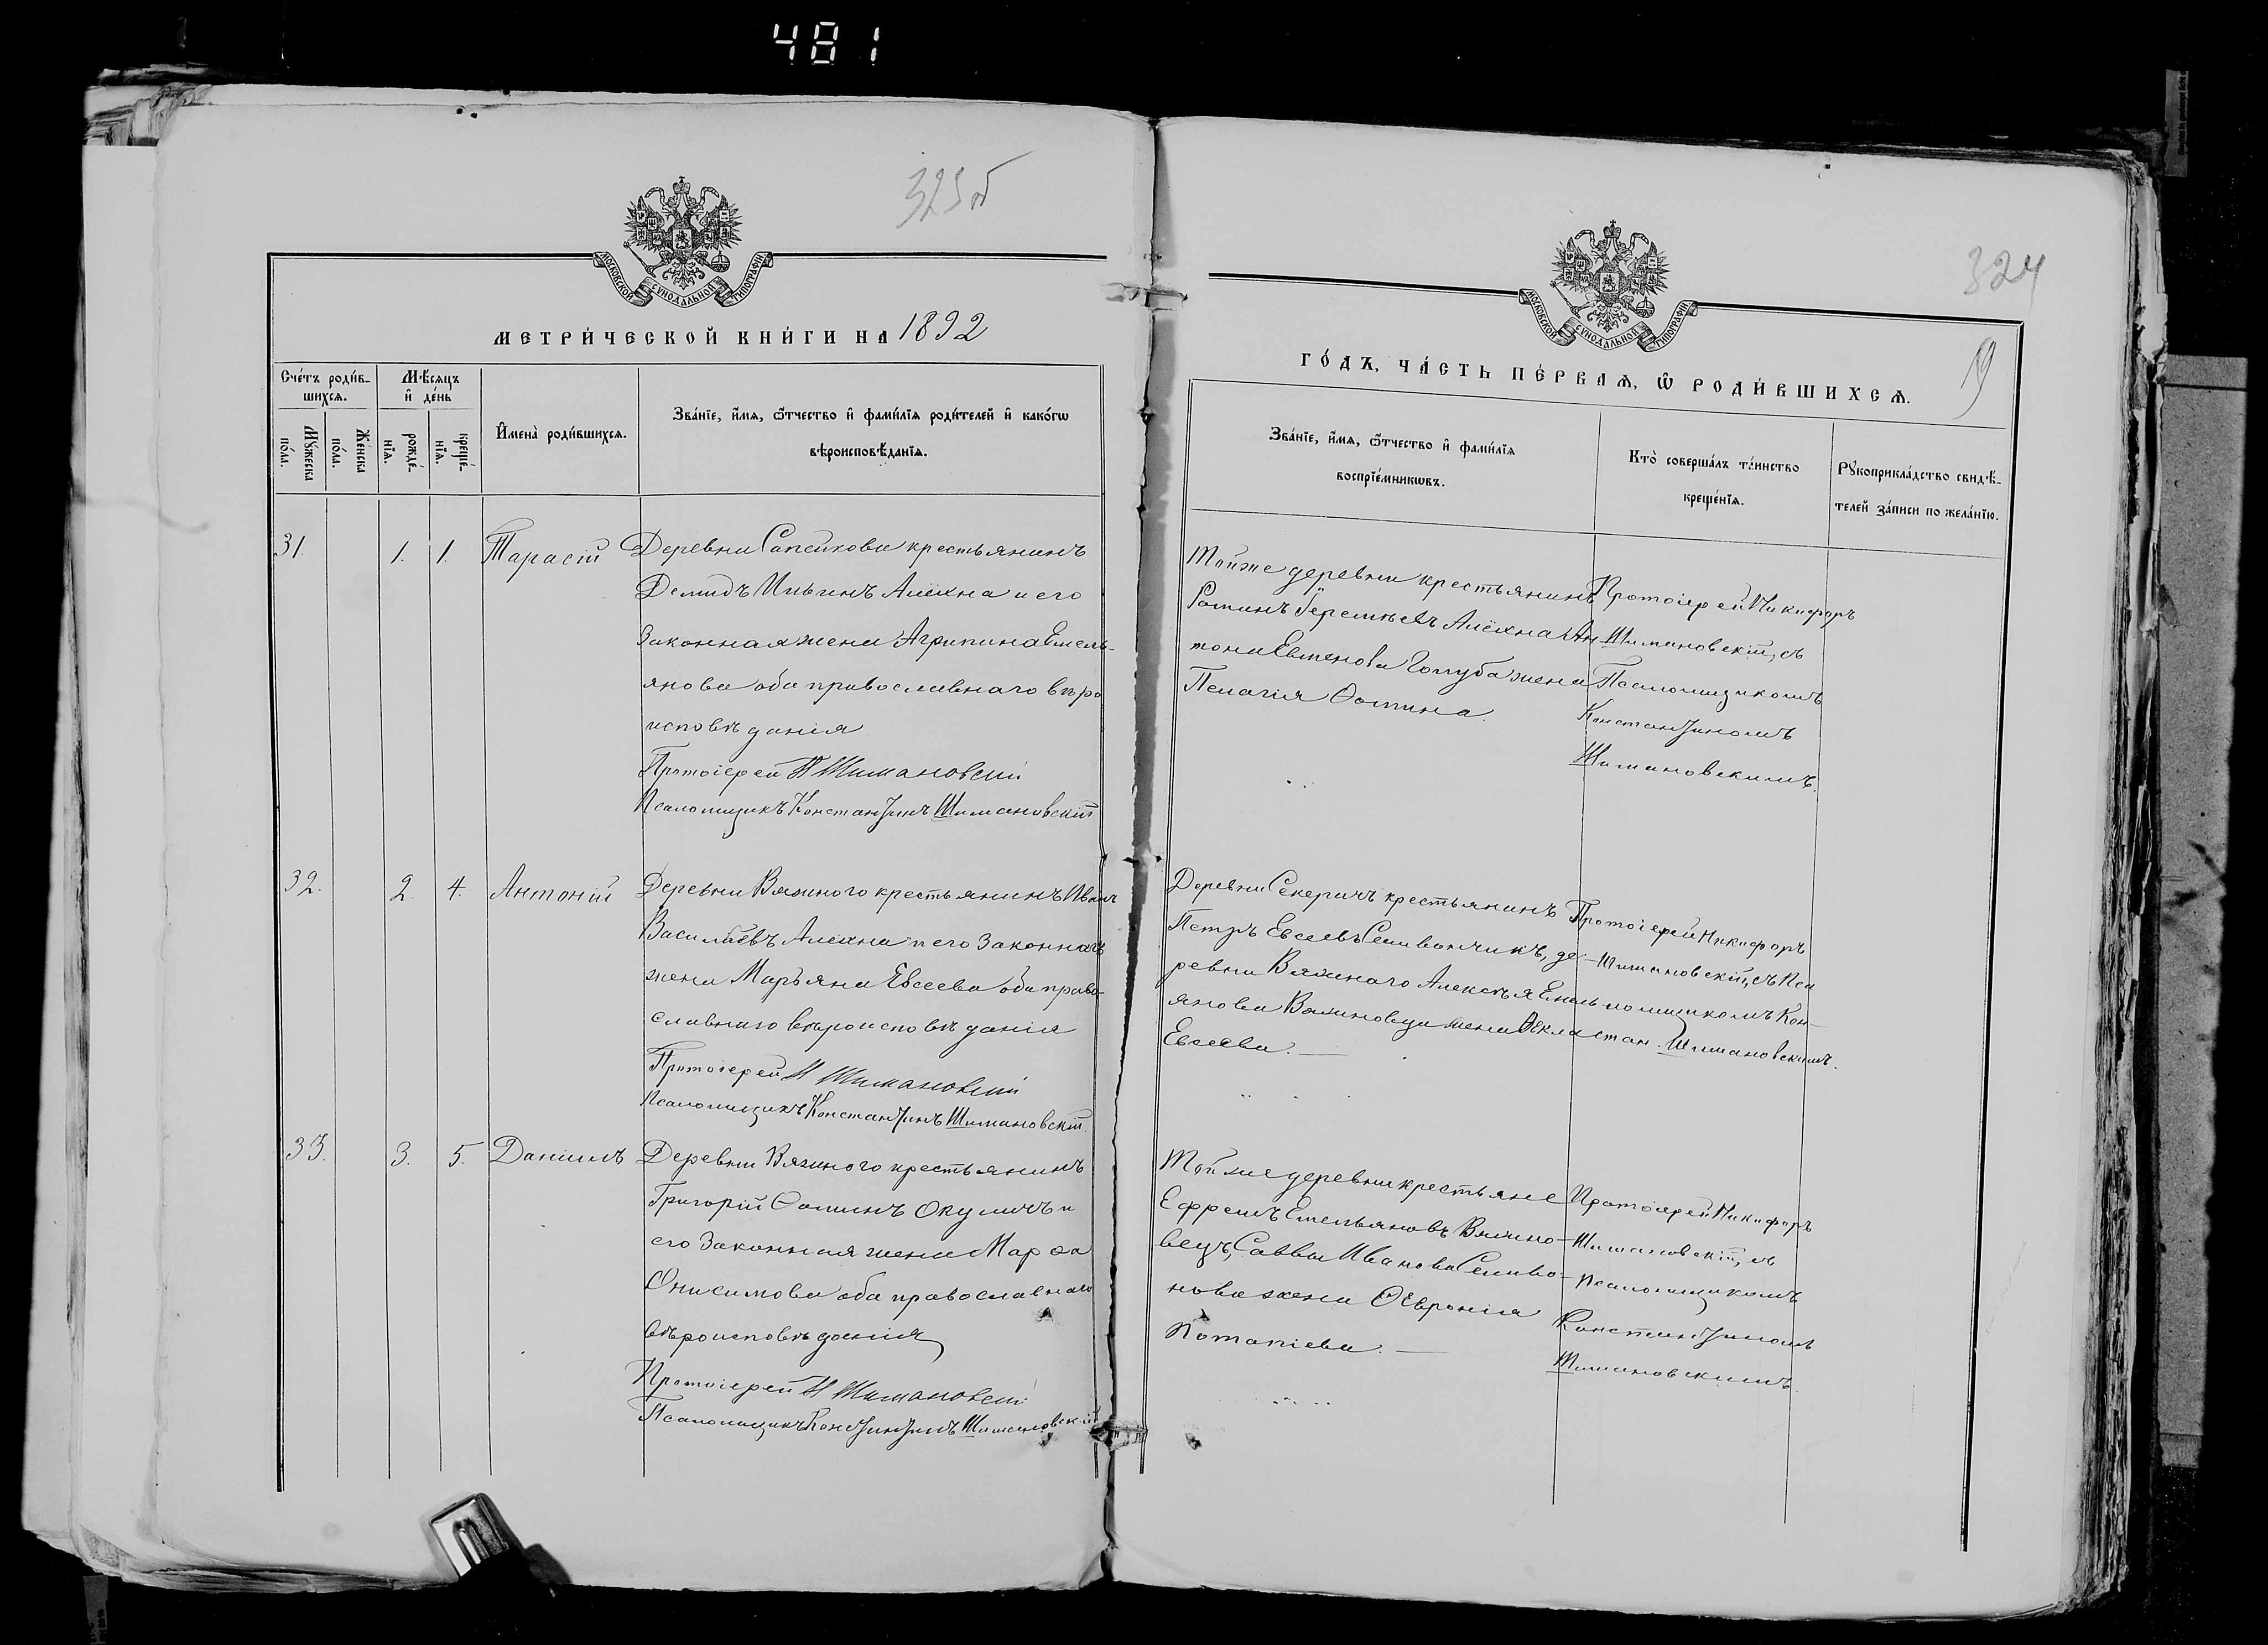 481
323об
МОСКОВСКОЙ СУНОДАЛЬНОЙ ТИПОГРАФІИ
МЕТРИ́ЧЕСКОЙ КНИ́ГИ НА 1892
Счётъ роди́в-
шихся.
Мѣ́сяцъ
и҆ де́нь
Мꙋ́жеска
по́ла.
Же́нска
по́ла.
рожде́-
нїѧ.
креще́-
нїѧ.
И҆мена̀ роди́вшихсѧ.
Зва́нїе, и҆́мѧ, ѻ҆́тчество и҆ фами́лїѧ роди́телей и҆ како́гѡ
вѣроисповѣ́данїѧ.
31.
1.
1.
Тарасій
Деревни Сапейкова крестьянинъ
Демидъ Ильинъ Алёхна и его
законная жена Агрипина Емель-
янова оба православнаго вѣро
исповѣданія
Протоіерей Н Шимановскій
Псаломщикъ Константинъ Шимановскій
32.
2.
4.
Антоній
Деревни Вяжного крестьянинъ Иванъ
Васильевъ Алехна и его законная
жена Марьяна Евсеева оба право-
славнаго вѣроисповѣданія
Протоіерей Н Шимановскій
Псаломщикъ Константинъ Шимановскій.
33.
3.
5.
Даніилъ
Деревни Вяжного крестьянинъ
Григорій Ѳоминъ Окуличъ и
его законная жена Марѳа
Онисимова оба православнаго
вѣроисповѣданія
Протоіерей Н Шимановскій
Псаломщикъ Константинъ Шимановскій
324
МОСКОВСКОЙ СУНОДАЛЬНОЙ ТИПОГРАФІИ
19
ГО́ДЪ, ЧА́СТЬ ПЕ́РВАѦ, Ѡ҆ РОДИ́ВШИХСѦ.
Зва́нїе, и҆́мѧ, ѻ҆́тчество и҆ фами́лїѧ
воспрїе́мникѡвъ.
Кто̀ соверша́лъ та́инство
креще́нїѧ.
Рꙋкоприкла́дство свидѣ́-
телей за́писи по жела́нїю.
Тойже деревни крестьянинъ
Еремѣевъ Алёхна Ан-
тона Евменова Голуба жена
Пелагія Ѳомина.
Протоіерей Никифоръ
Шимановскій, съ
Псаломщикомъ
Константиномъ
Шимановскимъ.
Деревни Секеричъ крестьянинъ
Петръ Евсеевъ Селивончикъ, де-
ревни Вяжнаго Алексѣя Емель-
янова Вяжновца жена Ѳекла
Евсеева.
Протоіерей Никифоръ
Шимановскій, съ Пса
ломщикомъ Кон-
стан. Шимановскимъ.
Той же деревни крестьяне
Ефремъ Емельяновъ Вяжно-
вецъ, Саввы Иванова Селиво-
нова жена Ѳевронія
Потапіева.
Протоіерей Никифоръ
Шимановскій, съ
псаломщикомъ
Константиномъ
Шимановскимъ.